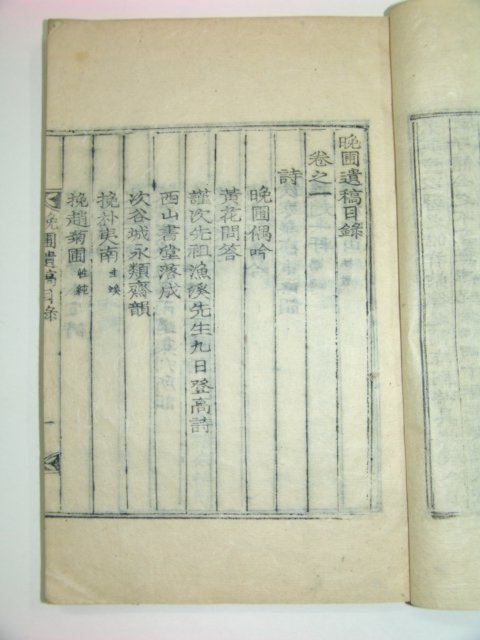 晩圃遺稿目錄
卷之一
詩
晩圃偶吟
黃花問答
謹次先祖漁溪先生九日登高詩
西山書堂落成
次谷城永類齋韻
挽朴夷南
挽趙菊圃 性純
晩圃遺稿目錄 一